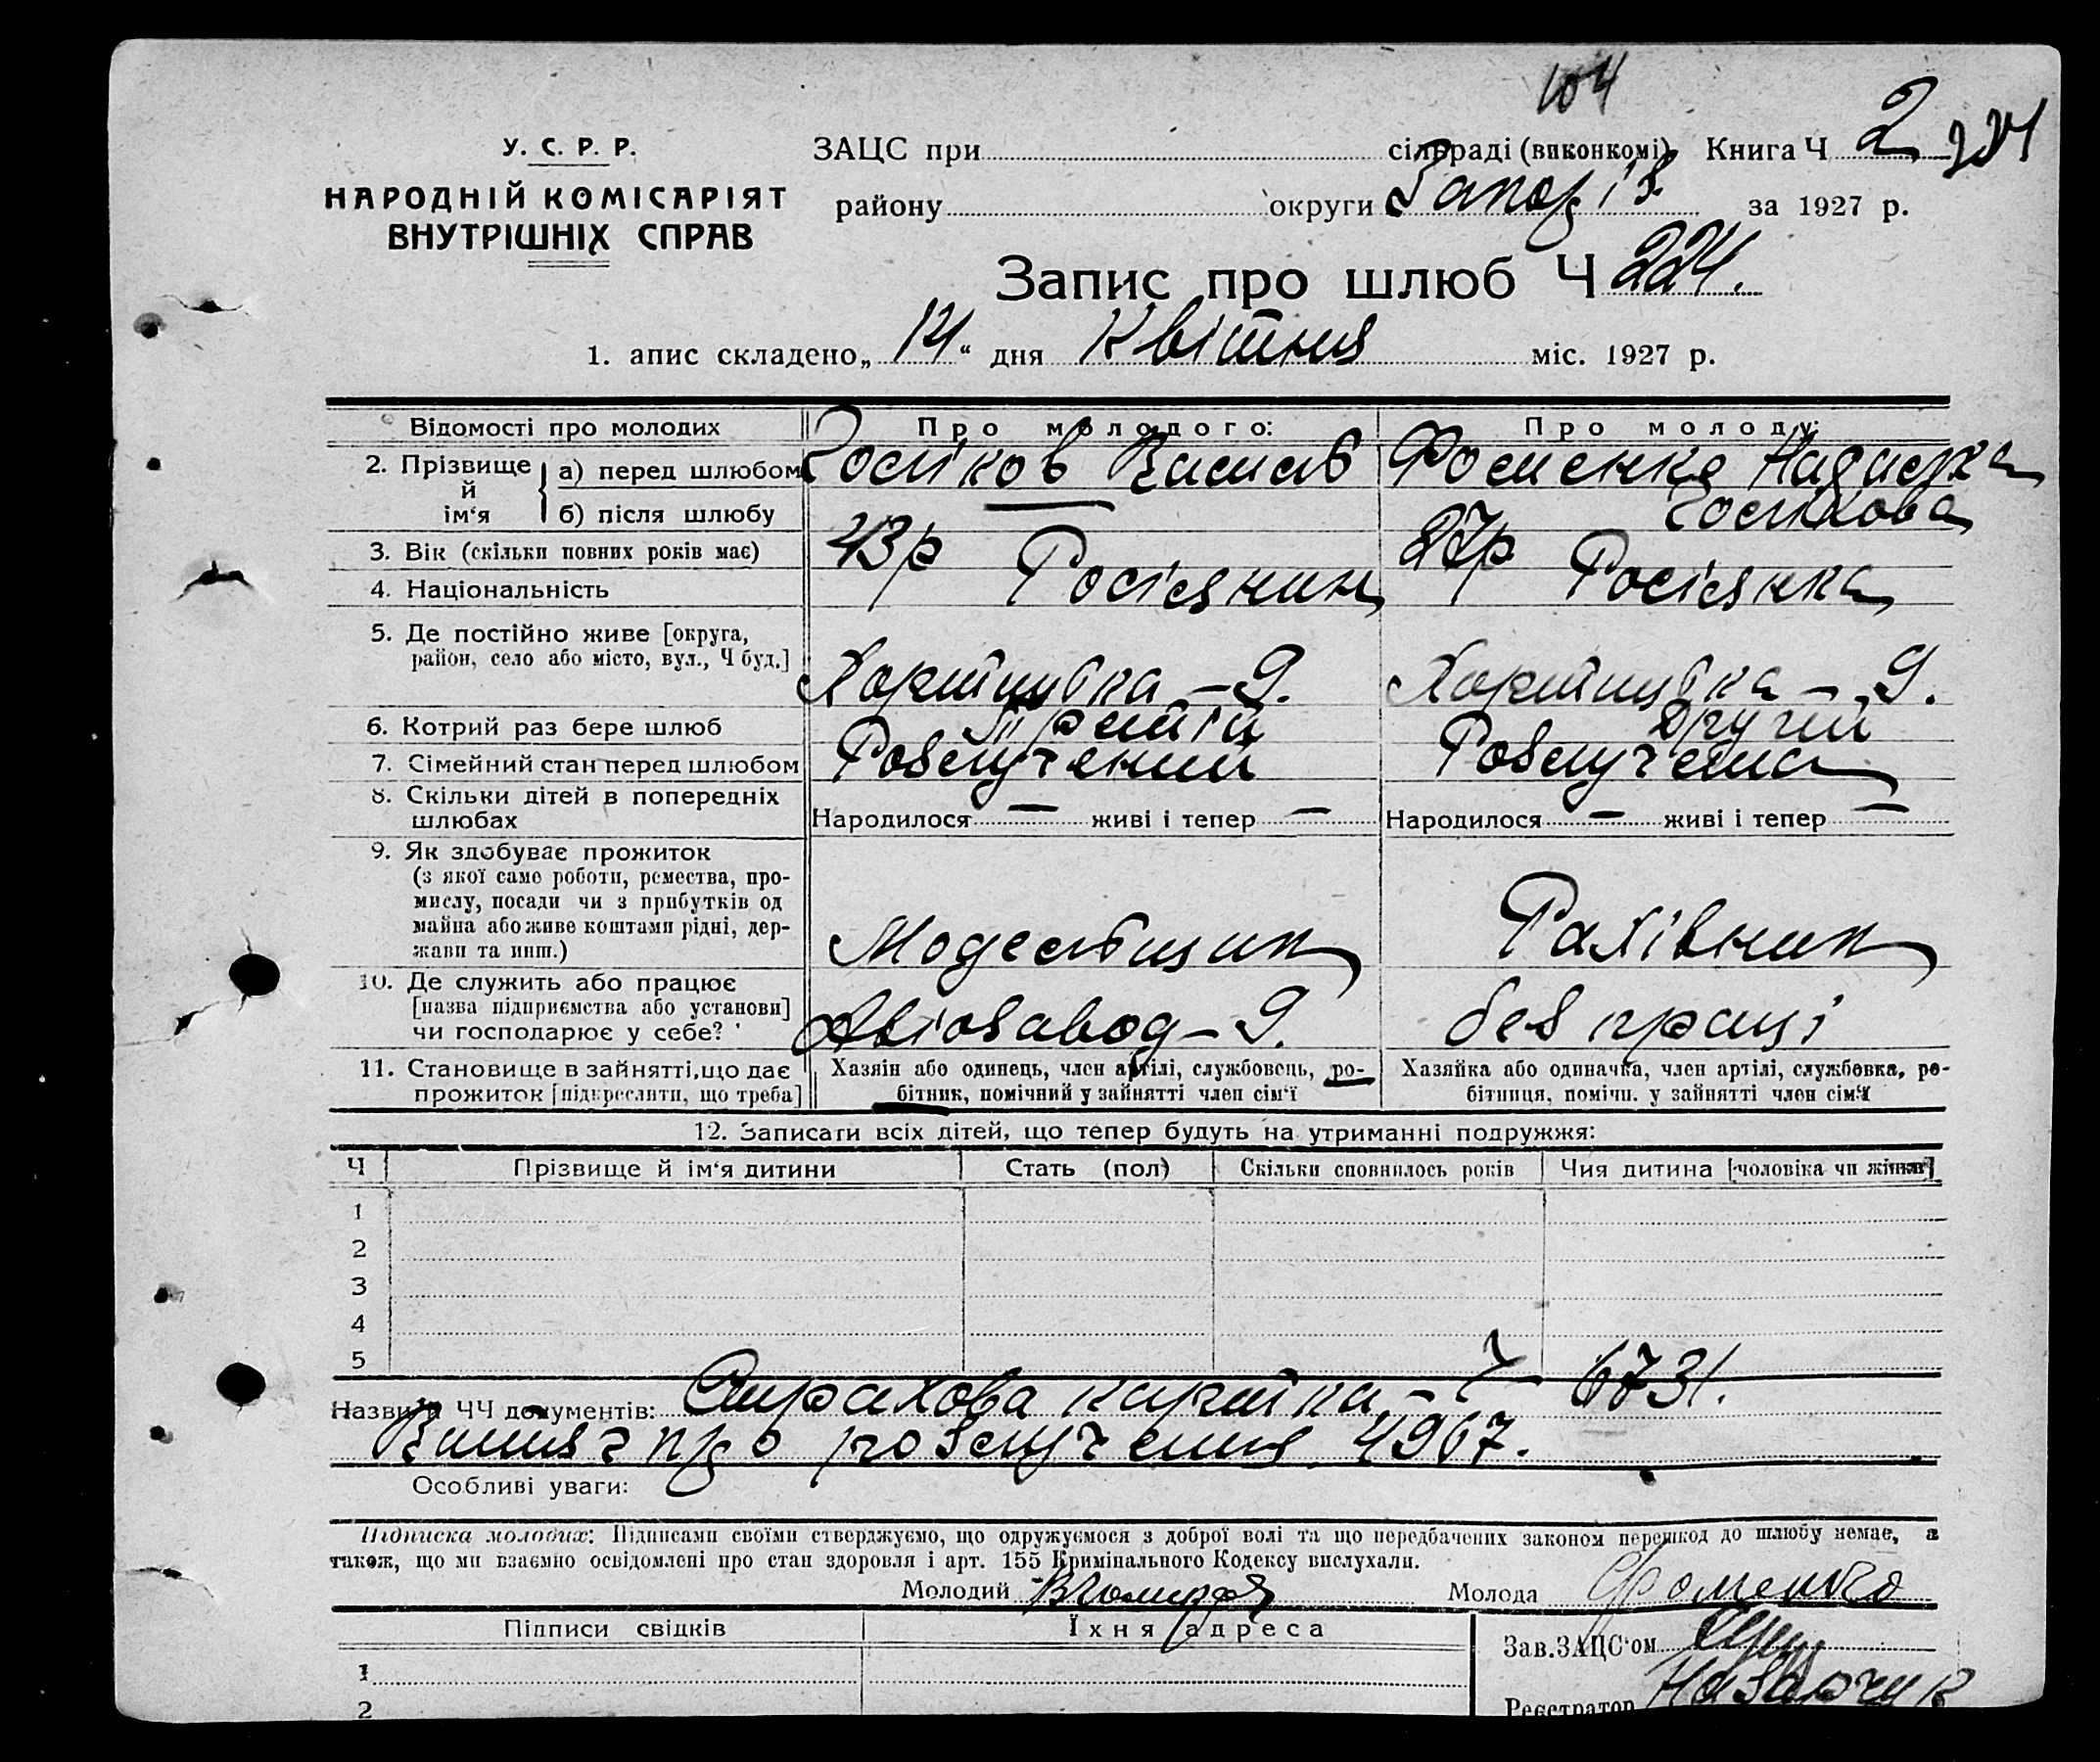 104
У. С. Р. Р.
НАРОДНІЙ КОМІСАРІЯТ
ВНУТРІШНІХ СПРАВ
ЗАЦС при сільраді (виконкомі) Книга Ч 2
району округи Запоріз. за 1927 р.
Запис про шлюб Ч 224.
1. апис складено „14“ дня Квітня міс. 1927 р.
Відомості про молодих Про молодого: Про молоду:
2. Прізвище й ім‘я а) перед шлюбом Фоменко
б) після шлюбу
3. Вік (скільки повних років має) 43р 27р
4. Національність Росіянин Росіянка
5. Де постійно живе [округа, район, село або місто, вул., Ч буд.] – 9. – 9.
6. Котрий раз бере шлюб Третій Другий
7. Сімейний стан перед шлюбом Розлучений Розлучена
8. Скільки дітей в попередніх шлюбах Народилося — живі і тепер — Народилося — живі і тепер —
9. Як здобуває прожиток
(з якої само роботи, ремества, про-
мислу, посади чи з прибутків од
майна або живе коштами рідні, дер-
жави та инш.) Рахівник
10. Де служить або працює
[назва підприємства або установи]
чи господарює у себе? Авіозавод – 9. без праці
11. Становище в зайнятті, що дає
прожиток [підкреслити, що треба]
Хазяін або одинець, член артілі, службовець, ро-
бітник, помічний у зайнятті член сім‘ї
Хазяйка або одиначка, член артілі, службовка, ро-
бітниця, помічн. у зайнятті член сім‘ї
12. Записати всіх дітей, що тепер будуть на утриманні подружжя:
Ч Прізвище й ім‘я дитини Стать (пол) Скільки сповнилось років Чия дитина [чоловіка чи жінки]
1
2
3
4
5
Назви й ЧЧ документів: Страхова картка – Ч 6731.
Витяг про розлучення 4967.
Особливі уваги:
Підписка молодих: Підписами своїми стверджуємо, що одружуємося з доброї волі та що передбачених законом перешкод до шлюбу немає, а
також, що ми взаємно освідомлені про стан здоровля і арт. 155 Кримінального Кодексу вислухали.
Молодий Молода Фоменко
Підписи свідків Їхня адреса
Зав. ЗАЦС‘ом
1
Реєстратор
2